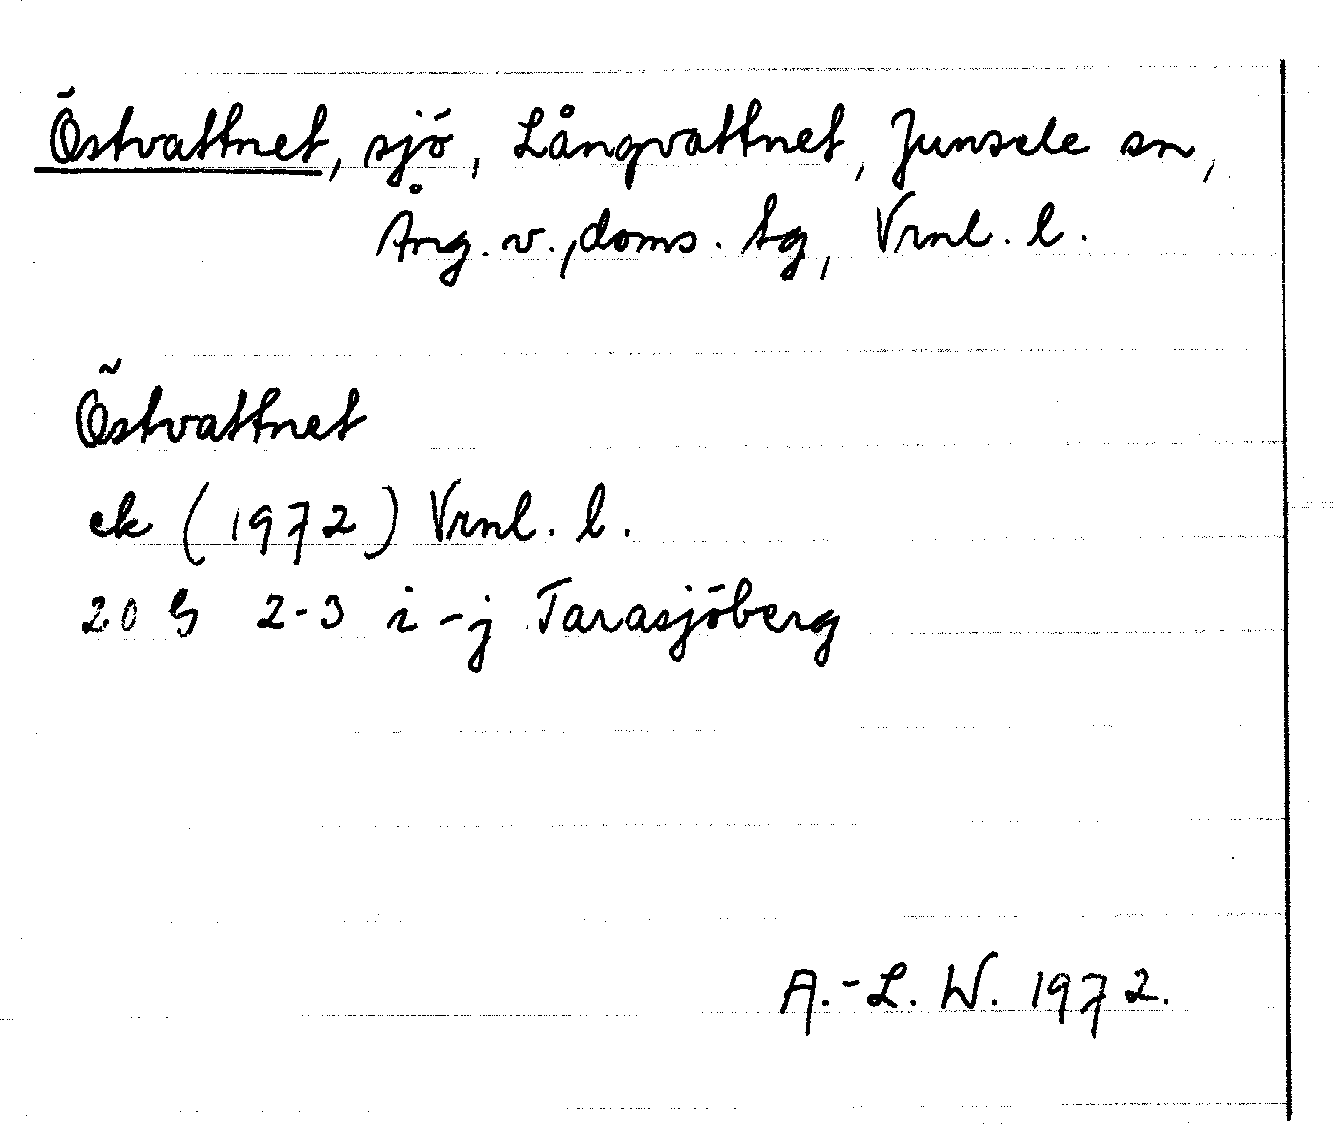 Östvattnet, sjö, Långvattnet, Junsele sn,
Ång. v., doms. tg, Vrnl. l.
Östvattnet
ek (1972) Vrnl. l.
20 G 2-3 i-j Tarasjöberg
A.-L. W. 1972.